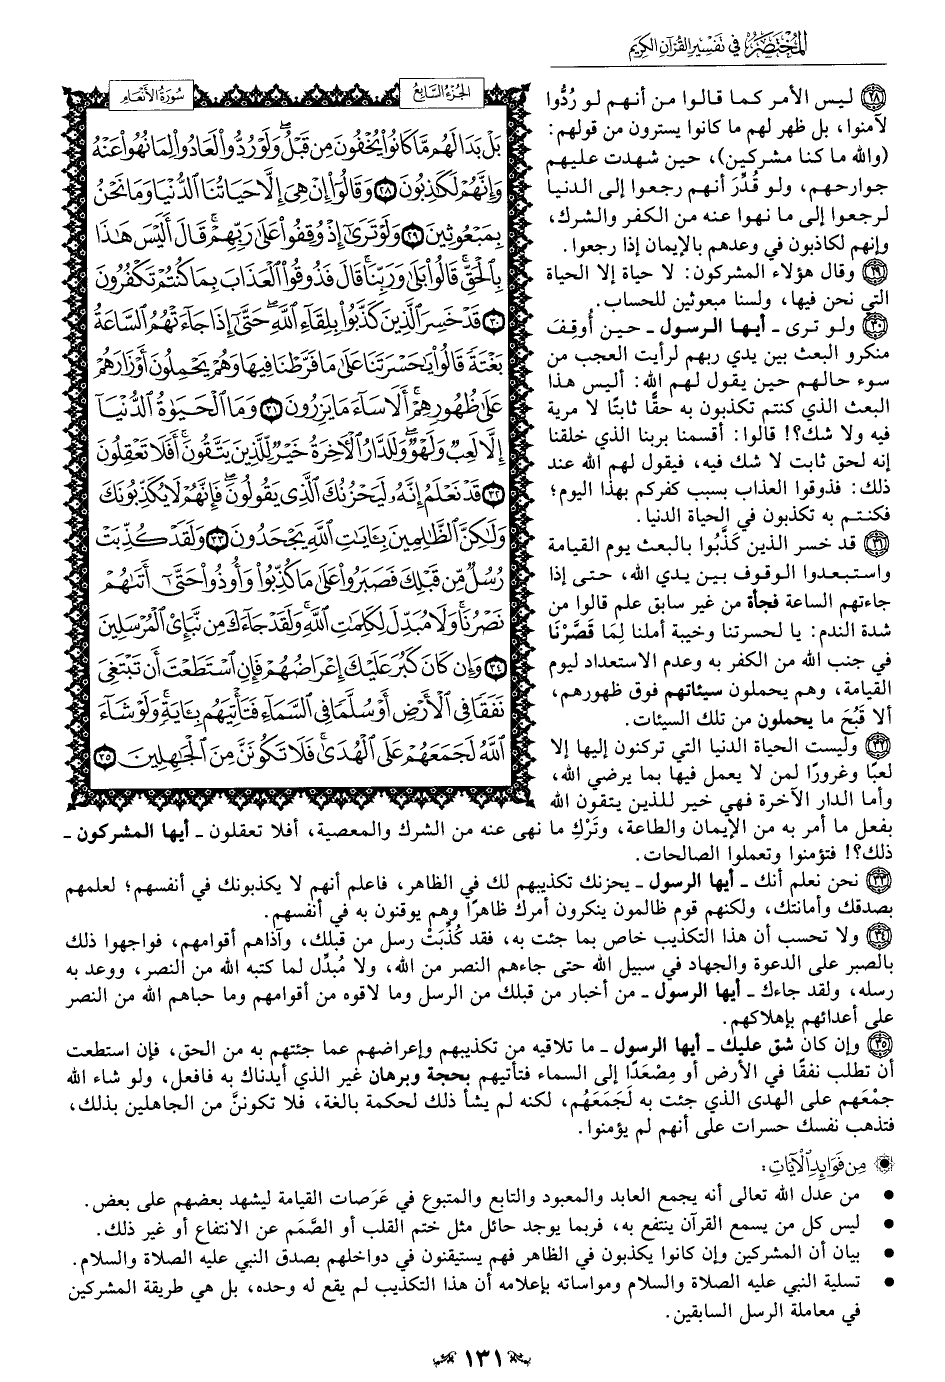 المختصر في تفسير القرآن الكريم
الجزء السابع
سورة الأنعام
بَلْ بَدَا لَهُم مَّا كَانُوا۟ يُخْفُونَ مِن قَبْلُ ۖ وَلَوْ رُدُّوا۟ لَعَادُوا۟ لِمَا نُهُوا۟ عَنْهُ
وَإِنَّهُمْ لَكَـٰذِبُونَ ٢٨ وَقَالُوٓا۟ إِنْ هِىَ إِلَّا حَيَاتُنَا ٱلدُّنْيَا وَمَا نَحْنُ
بِمَبْعُوثِينَ ٢٩ وَلَوْ تَرَىٰٓ إِذْ وُقِفُوا۟ عَلَىٰ رَبِّهِمْ ۚ قَالَ أَلَيْسَ هَـٰذَا
بِٱلْحَقِّ ۚ قَالُوا۟ بَلَىٰ وَرَبِّنَا ۚ قَالَ فَذُوقُوا۟ ٱلْعَذَابَ بِمَا كُنتُمْ تَكْفُرُونَ
٣٠ قَدْ خَسِرَ ٱلَّذِينَ كَذَّبُوا۟ بِلِقَآءِ ٱللَّهِ ۖ حَتَّىٰٓ إِذَا جَآءَتْهُمُ ٱلسَّاعَةُ
بَغْتَةً قَالُوا۟ يَـٰحَسْرَتَنَا عَلَىٰ مَا فَرَّطْنَا فِيهَا وَهُمْ يَحْمِلُونَ أَوْزَارَهُمْ
عَلَىٰ ظُهُورِهِمْ ۚ أَلَا سَآءَ مَا يَزِرُونَ ٣١ وَمَا ٱلْحَيَوٰةُ ٱلدُّنْيَآ
إِلَّا لَعِبٌ وَلَهْوٌ ۖ وَلَلدَّارُ ٱلْـَٔاخِرَةُ خَيْرٌ لِّلَّذِينَ يَتَّقُونَ ۗ أَفَلَا تَعْقِلُونَ
٣٢ قَدْ نَعْلَمُ إِنَّهُۥ لَيَحْزُنُكَ ٱلَّذِى يَقُولُونَ ۖ فَإِنَّهُمْ لَا يُكَذِّبُونَكَ
وَلَـٰكِنَّ ٱلظَّـٰلِمِينَ بِـَٔايَـٰتِ ٱللَّهِ يَجْحَدُونَ ٣٣ وَلَقَدْ كُذِّبَتْ
رُسُلٌ مِّن قَبْلِكَ فَصَبَرُوا۟ عَلَىٰ مَا كُذِّبُوا۟ وَأُوذُوا۟ حَتَّىٰٓ أَتَىٰهُمْ
نَصْرُنَا ۚ وَلَا مُبَدِّلَ لِكَلِمَـٰتِ ٱللَّهِ ۚ وَلَقَدْ جَآءَكَ مِن نَّبَإِى۟ ٱلْمُرْسَلِينَ
٣٤ وَإِن كَانَ كَبُرَ عَلَيْكَ إِعْرَاضُهُمْ فَإِنِ ٱسْتَطَعْتَ أَن تَبْتَغِىَ
نَفَقًا فِى ٱلْأَرْضِ أَوْ سُلَّمًا فِى ٱلسَّمَآءِ فَتَأْتِيَهُم بِـَٔايَةٍ ۚ وَلَوْ شَآءَ
ٱللَّهُ لَجَمَعَهُمْ عَلَى ٱلْهُدَىٰ ۚ فَلَا تَكُونَنَّ مِنَ ٱلْجَـٰهِلِينَ ٣٥
٢٨ ليس الأمر كما قالوا من أنهم لو رُدُّوا
لآمنوا، بل ظهر لهم ما كانوا يسترون من قولهم:
(والله ما كنا مشركين)، حين شهدت عليهم
جوارحهم، ولو قُدِّرَ أنهم رجعوا إلى الدنيا
لرجعوا إلى ما نهوا عنه من الكفر والشرك،
وإنهم لكاذبون في وعدهم بالإيمان إذا رجعوا.
٢٩ وقال هؤلاء المشركون: لا حياة إلا الحياة
التي نحن فيها، ولسنا مبعوثين للحساب.
٣٠ ولو ترى ـ أيها الرسول ـ حين أُوقِفَ
منكرو البعث بين يدي ربهم لرأيت العجب من
سوء حالهم حين يقول لهم الله: أليس هذا
البعث الذي كنتم تكذبون به حقًّا ثابتًا لا مرية
فيه ولا شك؟! قالوا: أقسمنا بربنا الذي خلقنا
إنه لحق ثابت لا شك فيه، فيقول لهم الله عند
ذلك: فذوقوا العذاب بسبب كفركم بهذا اليوم؛
فكنتم به تكذبون في الحياة الدنيا.
٣١ قد خسر الذين كَذَّبُوا بالبعث يوم القيامة
واستبعدوا الوقوف بين يدي الله، حتى إذا
جاءتهم الساعة فجأة من غير سابق علم قالوا من
شدة الندم: يا لحسرتنا وخيبة أملنا لِمَا قَصَّرْنَا
في جنب الله من الكفر به وعدم الاستعداد ليوم
القيامة، وهم يحملون سيئاتهم فوق ظهورهم،
ألا قَبُحَ ما يحملون من تلك السيئات.
٣٢ وليست الحياة الدنيا التي تركنون إليها إلا
لعبًا وغرورًا لمن لا يعمل فيها بما يرضي الله،
وأما الدار الآخرة فهي خير للذين يتقون الله
بفعل ما أمر به من الإيمان والطاعة، وتَرْكِ ما نهى عنه من الشرك والمعصية، أفلا تعقلون ـ أيها المشركون ـ
ذلك؟! فتؤمنوا وتعملوا الصالحات.
٣٣ نحن نعلم أنك ـ أيها الرسول ـ يحزنك تكذيبهم لك في الظاهر، فاعلم أنهم لا يكذبونك في أنفسهم؛ لعلمهم
بصدقك وأمانتك، ولكنهم قوم ظالمون ينكرون أمرك ظاهرًا وهم يوقنون به في أنفسهم.
٣٤ ولا تحسب أن هذا التكذيب خاص بما جئت به، فقد كُذِّبَتْ رسل من قبلك، وآذاهم أقوامهم، فواجهوا ذلك
بالصبر على الدعوة والجهاد في سبيل الله حتى جاءهم النصر من الله، ولا مُبدِّل لما كتبه الله من النصر، ووعد به
رسله، ولقد جاءك ـ أيها الرسول ـ من أخبار من قبلك من الرسل وما لاقوه من أقوامهم وما حباهم الله من النصر
على أعدائهم بإهلاكهم.
٣٥ وإن كان شق عليك ـ أيها الرسول ـ ما تلاقيه من تكذيبهم وإعراضهم عما جئتهم به من الحق، فإن استطعت
أن تطلب نفقًا في الأرض أو مِصْعَدًا إلى السماء فتأتيهم بحجة وبرهان غير الذي أيدناك به فافعل، ولو شاء الله
جمْعَهم على الهدى الذي جئت به لَجَمَعَهُم، لكنه لم يشأ ذلك لحكمة بالغة، فلا تكوننَّ من الجاهلين بذلك،
فتذهب نفسك حسرات على أنهم لم يؤمنوا.
من فوائد الآيات:
• من عدل الله تعالى أنه يجمع العابد والمعبود والتابع والمتبوع في عَرَصات القيامة ليشهد بعضهم على بعض.
• ليس كل من يسمع القرآن ينتفع به، فربما يوجد حائل مثل ختم القلب أو الصَّمَم عن الانتفاع أو غير ذلك.
• بيان أن المشركين وإن كانوا يكذبون في الظاهر فهم يستيقنون في دواخلهم بصدق النبي عليه الصلاة والسلام.
• تسلية النبي عليه الصلاة والسلام ومواساته بإعلامه أن هذا التكذيب لم يقع له وحده، بل هي طريقة المشركين
في معاملة الرسل السابقين.
١٣١